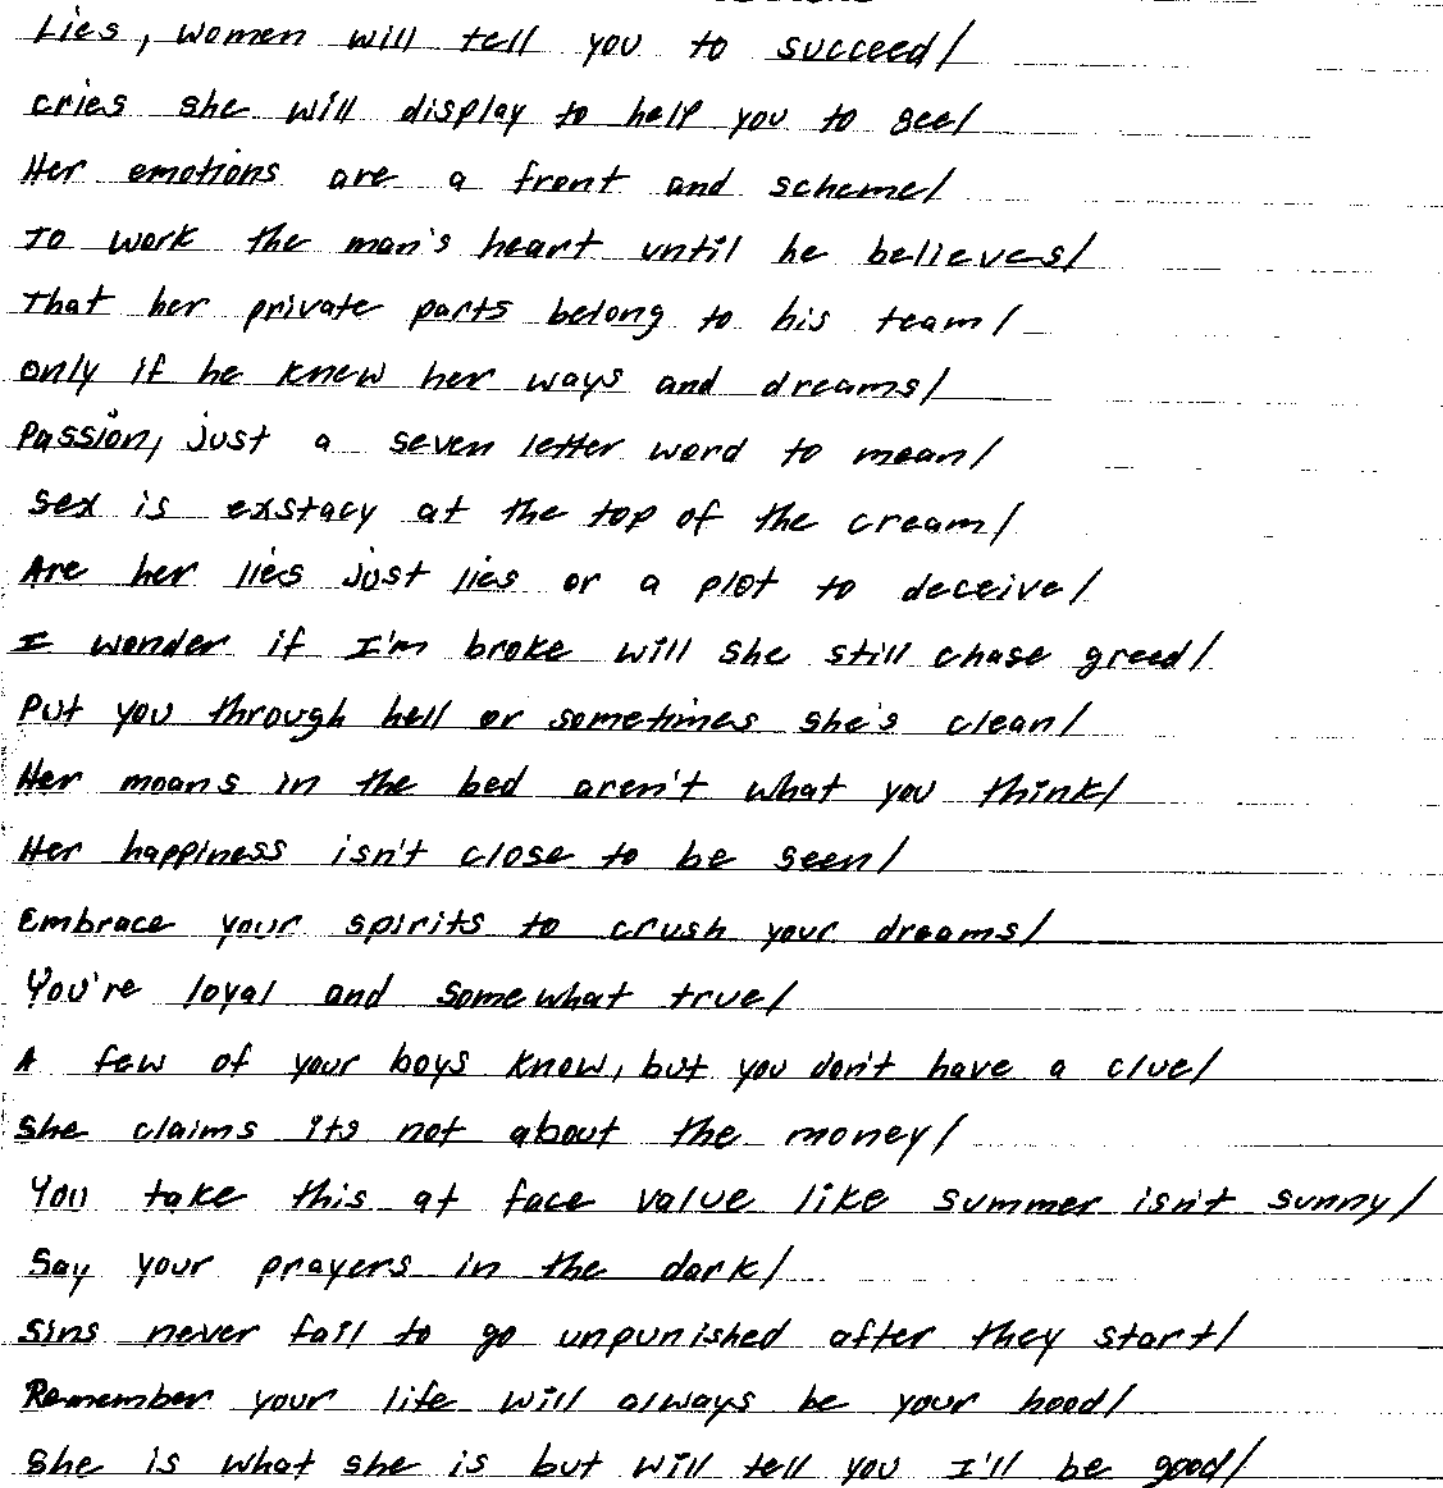 Lies, women will tell you to succeed/
cries she will display to help you to see/
Her emotions are a front and scheme/
To work the man's heart until he believes/
That her private parts belong to his team/
only if he knew her ways and dreams/
Passion, just a seven letter word to mean/
Sex is exstacy at the top of the cream/
Are her lies just lies or a plot to deceive/
I wonder if I'm broke will she still chase greed/
Put you through hell or sometimes she's clean/
Her moans in the bed aren't what you think/
Her happiness isn't close to be seen/
Embrace your spirits to crush your dreams/
You're loyal and somewhat true/
A few of your boys know, but you don't have a clue/
She claims its not about the money/
You take this at face value like summer isn't sunny/
Say your prayers in the dark/
Sins never fail to go unpunished after they start/
Remember your life will always be your hood/
She is what she is but will tell you I'll be good/